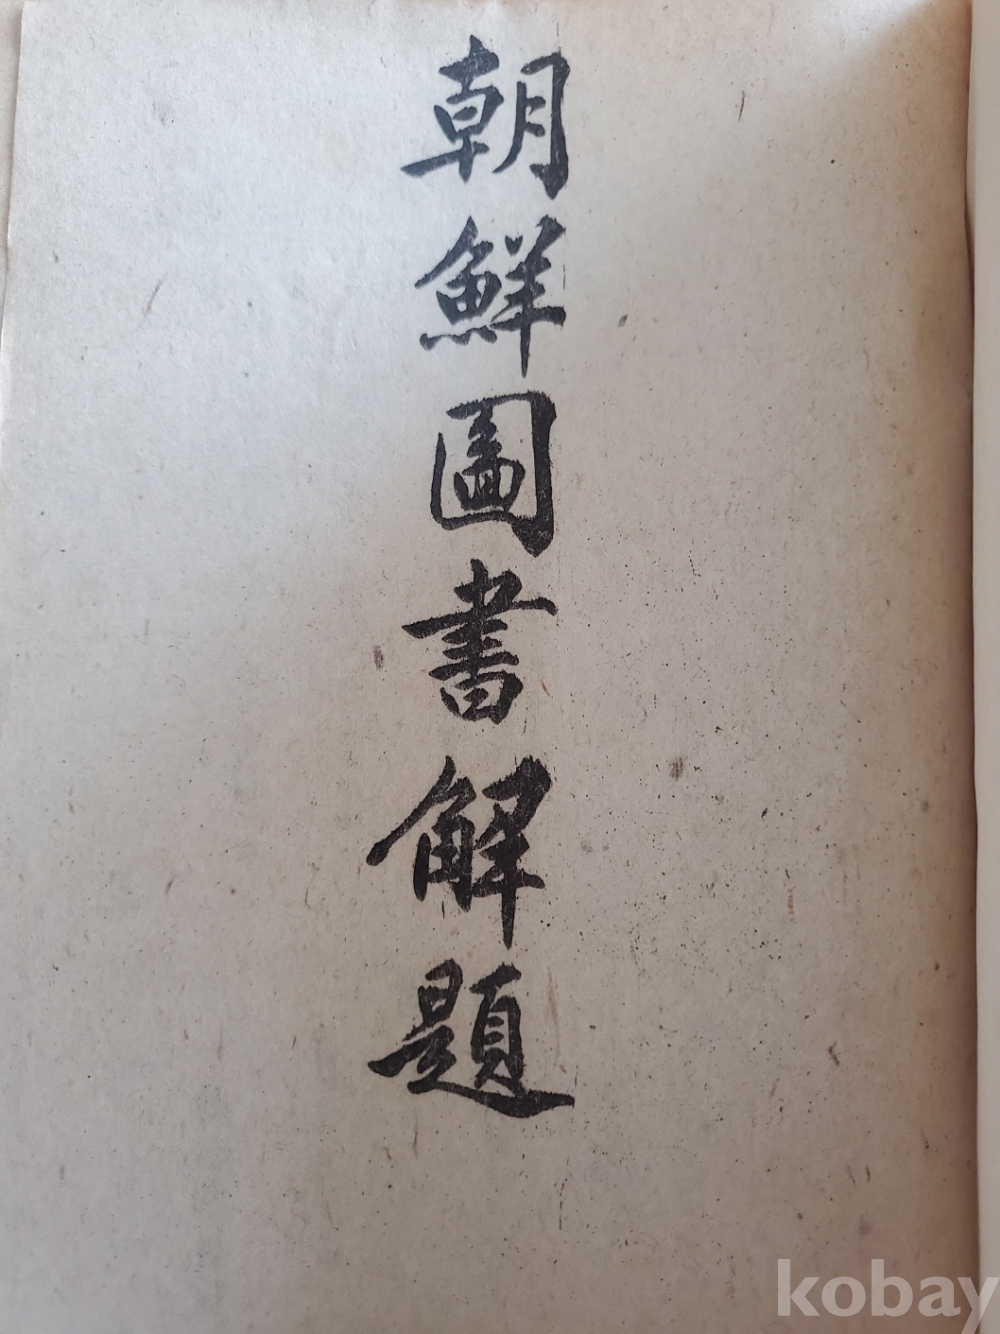 朝鮮圖書解題
kobay